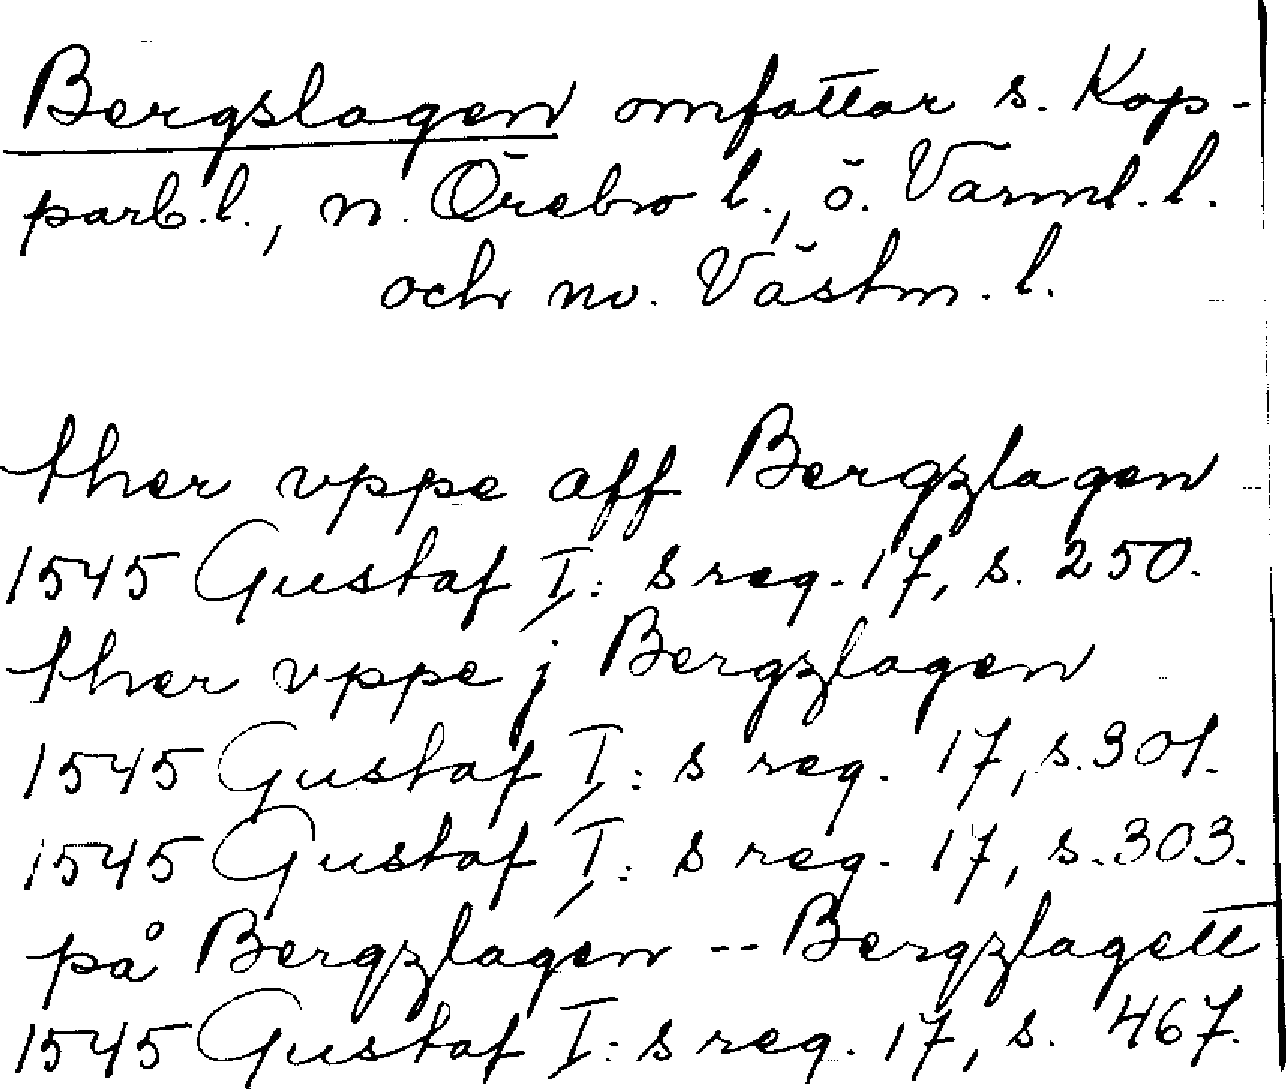 Bergslagen omfattar s. Kop-
parb. l., n. Örebro l., ö. Värml. l.
och nv. Västm. l.
ther vppe aff Bergzlagen
1545 Gustaf I:s reg. 17, s. 250.
ther vppe j Bergzlagen
1545 Gustaf I:s reg. 17, s. 301.
1545 Gustaf I:s reg. 17, s. 303.
på Bergzlagen -- Bergzlagett
1545 Gustaf I:s reg. 17, s. 467.